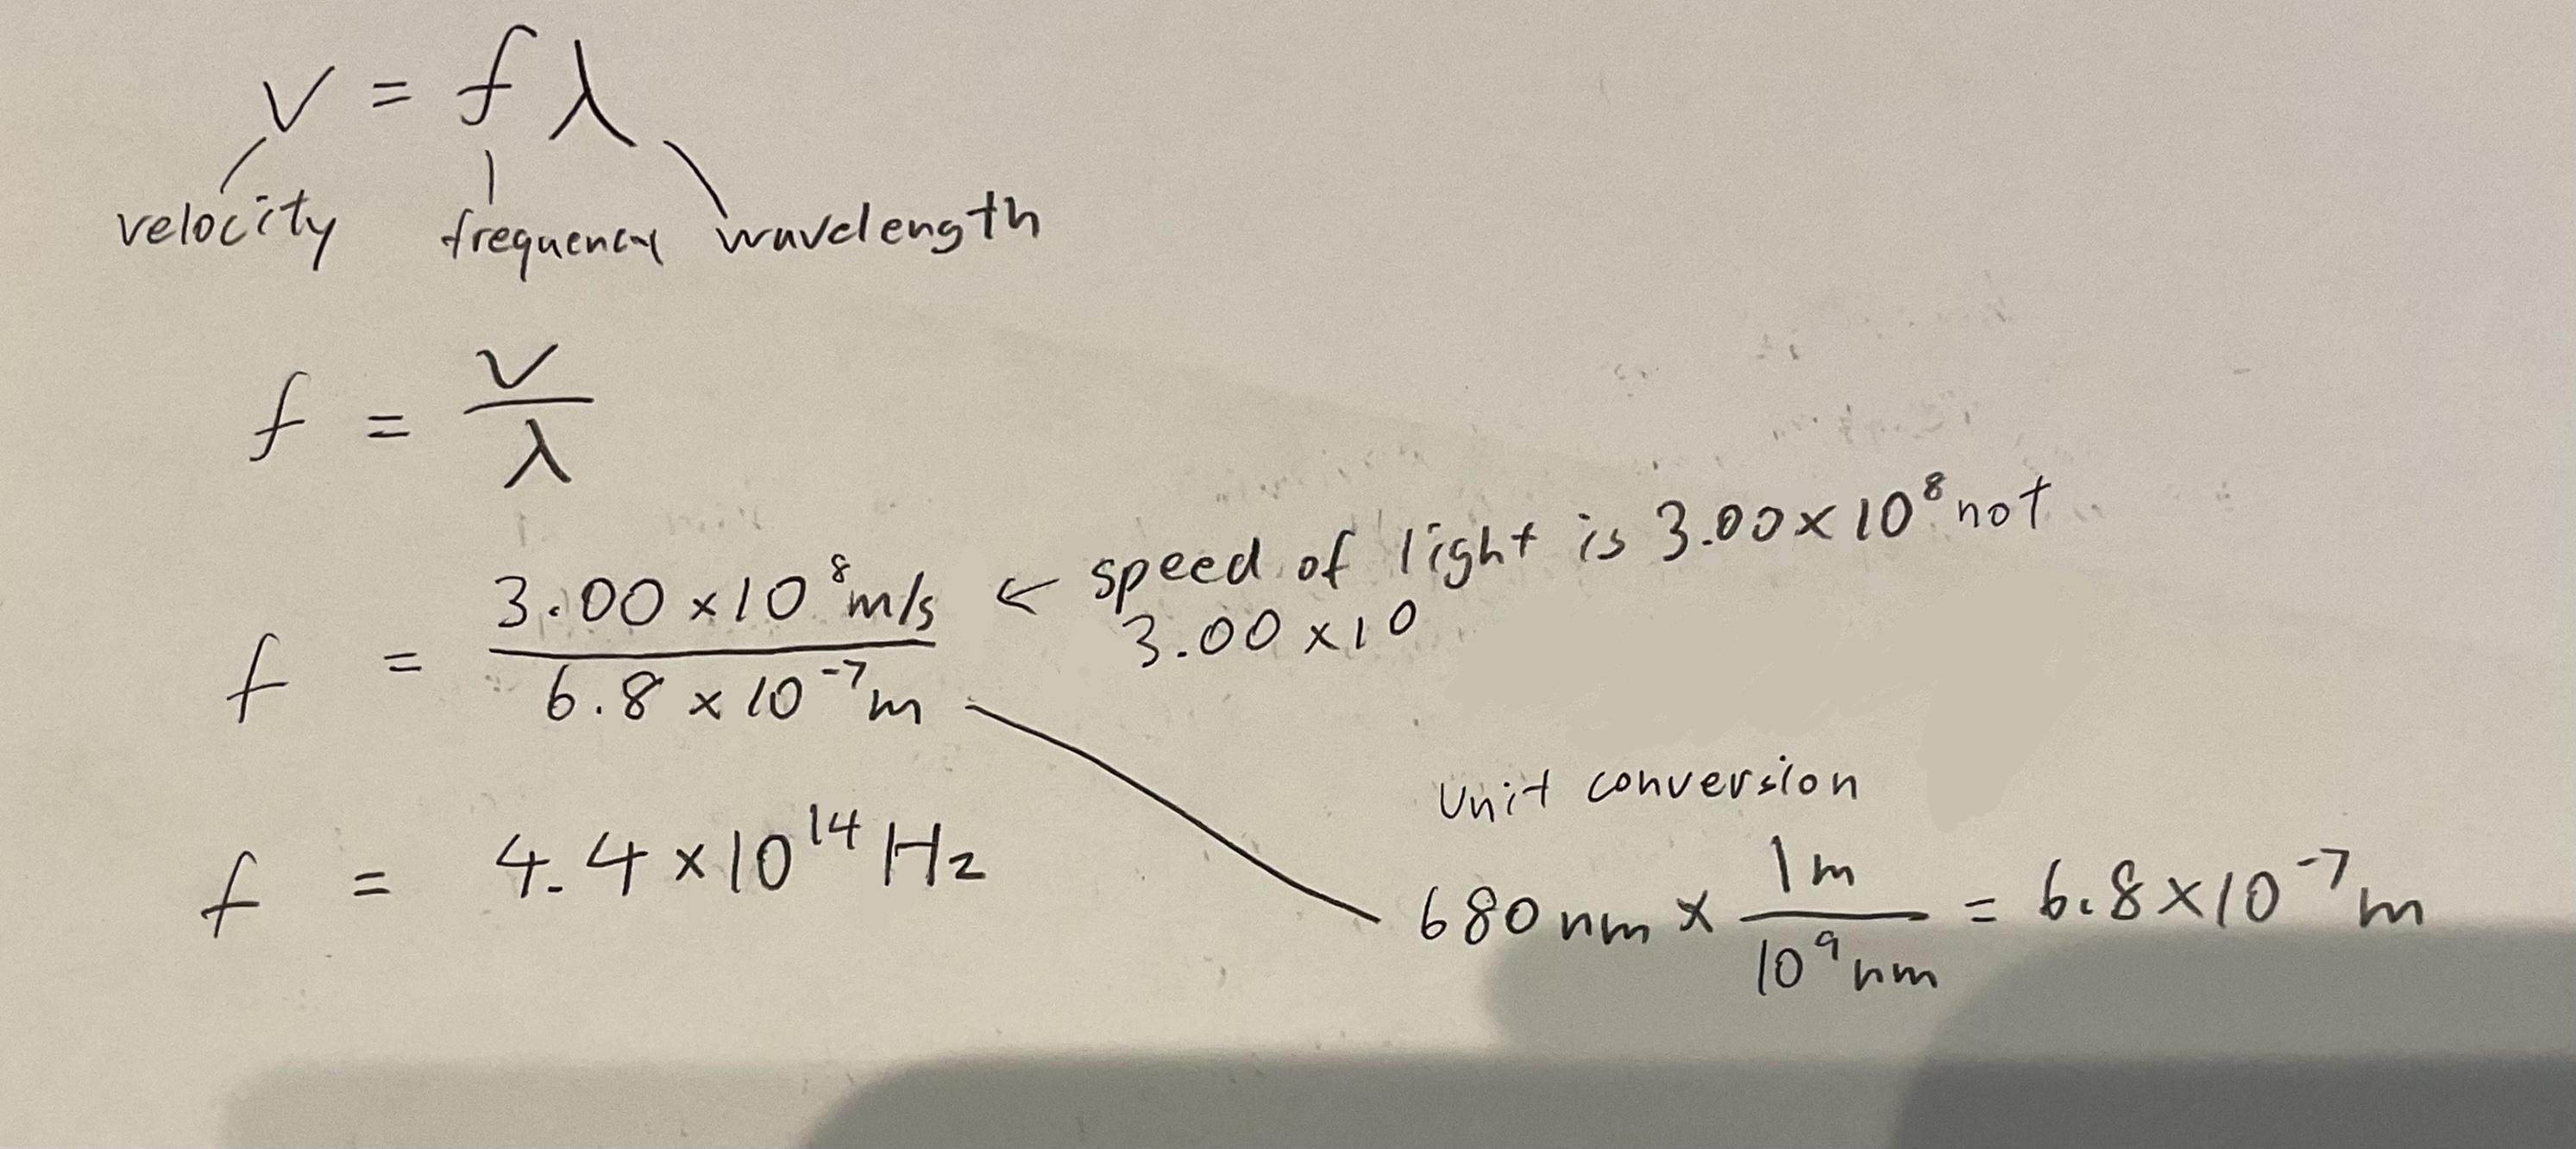 v = f λ
velocity frequency wavelength
f = v / λ
f = 3.00 × 10⁸ m/s / 6.8 × 10⁻⁷ m ← speed of light is 3.00 × 10⁸ not
3.00 × 10
unit conversion
680 nm × 1 m / 10⁹ nm = 6.8 × 10⁻⁷ m
f = 4.4 × 10¹⁴ Hz